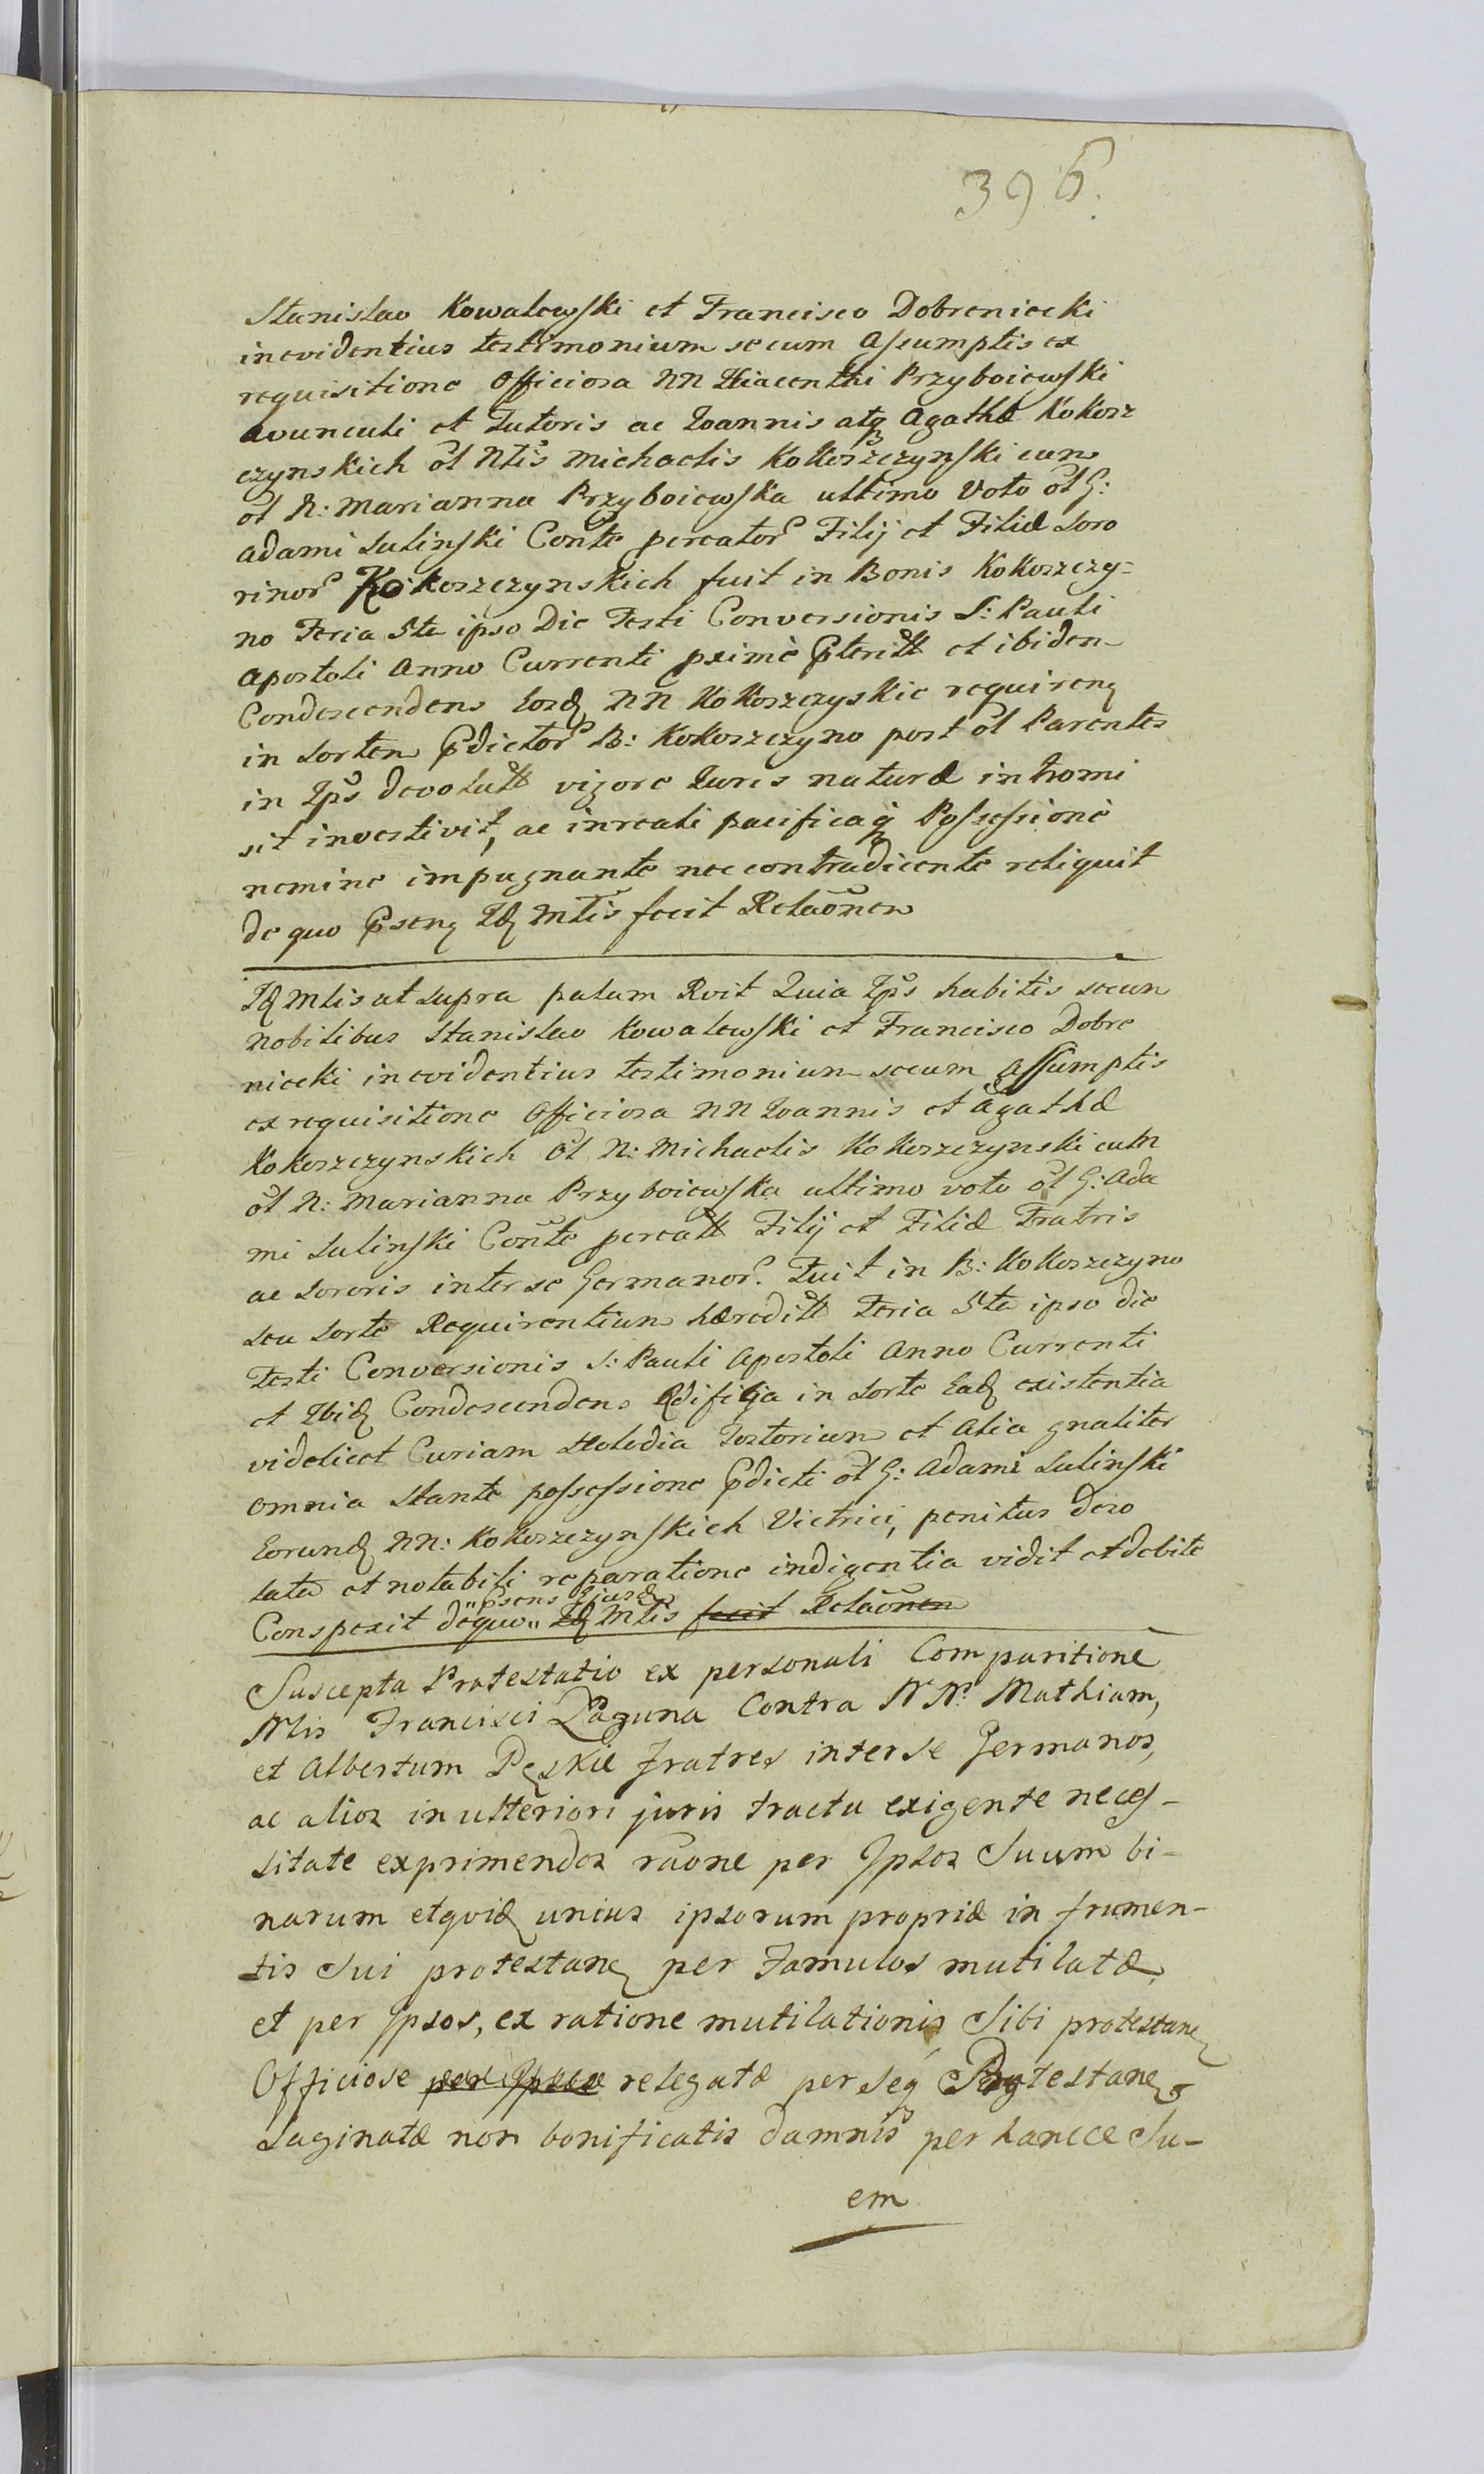 396.
Stanislao Kowalewski et Francisco Dobreniecki
in evidentius testimonium secum assumptis ex
requisitione Officiosa NN Hiacenthi Przyboiewski
avunculi et Tutoris ac Ioannis atq Agathæ Kokosz
czynskich ol Nlis Michaelis Kokoszczynski cum
ol N: Marianna Przyboiewska ultimo Voto ol G:
Adami Sulinski Conte percator Filij et Filiæ Soro
rinor Kokoszczynskich fuit in Bonis Kokoszczy=
no Feria 5ta ipso Die Festi Conversionis S: Pauli
Apostoli Anno Currenti pximè pterit et ibidem
Condescendens Eosd NN Kokoszczyskie requiren
in Sortem pdictor B: Kokoszczyno post ol Parentes
in Ips devolut vigore Iuris naturæ intromi
sit investivit, ac in reali pacificaq Possessione
nemine impugnante nec contradicente reliquit
de quo psens Id Mlis fecit Relaonem
Id Mlis ut supra palam Rvit Quia Ips habitis secum
Nobilibus Stanislao Kowalewski et Francisco Dobre
niecki in evidentius testimonium secum assumptis
ex requisitione Officiosa NN Ioannis et Agathæ
Kokoszczynskich Ol N: Michaelis Kokoszczynski cum
ol N: Marianna Przyboiewska ultimo voto ol G: Ada
mi Sulinski Conte percat Filij et Filiæ Fratris
ac Sororis inter se Germanor. Fuit in B: Kokoszczyno
seu Sorte Requirentium hæredit Feria 5ta ipso die
Festi Conversionis S: Pauli Apostoli Anno Currenti
et Ibid Condescendens Ædificia in Sorte Ead existentia
videlicet Curiam Prædia Testorium et Alia gnaliter
omnia Stante possessione pdicti ol G: Adami Sulinski
Eorund NN: Kokoszczynskich Victrici, penitus deso
lata et notabili reparatione indigentia vidit et debite
"psens Ejusd
Conspexit de quo" Id Mlis fecit Relaonem
Suscepta Protestatio ex personali Comparitione
Nlis Francisci Łaguna Contra NN: Mathiam,
et Albertum Pęskie fratres inter se Germanos,
ac alios in ulteriori juris tractu exigente neces-
sitate exprimendos raone per Ipsos Suum bi-
narum etqvid unius ipsorum propriæ in frumen-
tis Sui protestan per Famulos mutilatæ,
et per Ipsos, ex ratione mutilationis Sibi protestan
Officiose per Ipsos relegatæ per Seq Protestan
Saginatæ non bonificatis damnis per hancce Su-
em